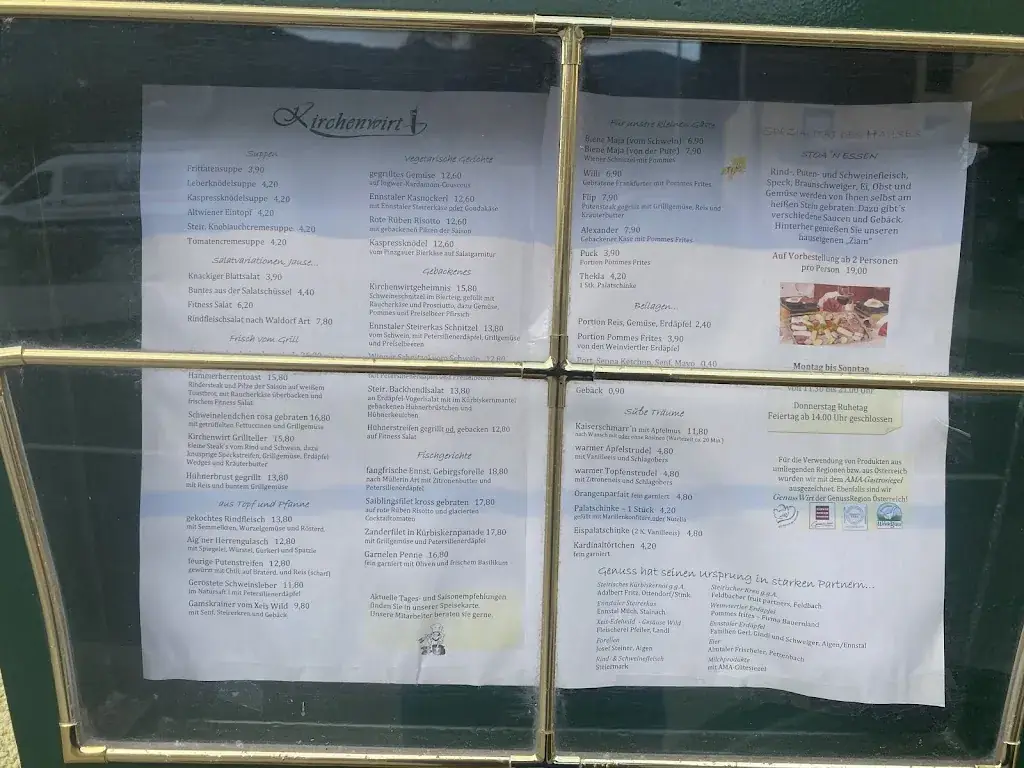 Kirchenwirt
Suppen
Frittatensuppe 3,90
Leberknödelsuppe 4,20
Kaspressknödelsuppe 4,20
Altwiener Eintopf 4,20
Steir. Knoblauchcremesuppe 4,20
Tomatencremesuppe 4,20
Salatvariationen, Jause...
Knackiger Blattsalat 3,90
Buntes aus der Salatschüssel 4,40
Fitness Salat 6,20
Rindfleischsalat nach Waldorf Art 7,80
Frisch vom Grill
Hammerherrentoast 15,80
Rindersteak und Pilze der Saison auf weißem
Toastbrot, mit Räucherkäse überbacken und
frischem Fitness Salat
Schweinelendchen rosa gebraten 16,80
mit getrüffelten Fettuccinen und Grillgemüse
Kirchenwirt Grillteller 15,80
kleine Steak's vom Rind und Schwein, dazu
knusprige Speckstreifen, Grillgemüse, Erdäpfel
Wedges und Kräuterbutter
Hühnerbrust gegrillt 13,80
mit Reis und buntem Grillgemüse
aus Topf und Pfanne
gekochtes Rindfleisch 13,80
mit Semmelkren, Wurzelgemüse und Rösterd.
Aig'ner Herrengulasch 12,80
mit Spiegelei, Würstel, Gurkerl und Spätzle
feurige Putenstreifen 12,80
gewürzt mit Chili, auf Braterd. und Reis (scharf)
Geröstete Schweinsleber 11,80
im Natursaft`l mit Petersilienerdäpfel
Gamskrainer vom Xeis Wild 9,80
mit Senf, Steirerkren und Gebäck
Vegetarische Gerichte
gegrilltes Gemüse 12,60
auf Ingwer-Kardamom-Couscous
Ennstaler Kasnockerl 12,60
mit Ennstaler Steirerkäse oder Goudakäse
Rote Rüben Risotto 12,60
mit gebackenen Pilzen der Saison
Kaspressknödel 12,60
vom Pinzgauer Bierkäse auf Salatgarnitur
Gebackenes
Kirchenwirtgeheimnis 15,80
Schweineschnitzel im Bierteig, gefüllt mit
Räucherkäse und Prosciutto, dazu Gemüse,
Pommes und Preiselbeer Pfirsich
Ennstaler Steirerkas Schnitzel 13,80
vom Schwein, mit Petersilienerdäpfel, Grillgemüse
und Preiselbeeren
Wiener Schnitzel vom Schwein 12,80
mit Petersilienerdäpfel und Preiselbeeren
Steir. Backhendlsalat 13,80
an Erdäpfel-Vogerlsalat mit im Kürbiskernmantel
gebackenen Hühnerbrüstchen und
Hühnerkeulchen
Hühnerstreifen gegrillt od. gebacken 12,80
auf Fitness Salat
Fischgerichte
fangfrische Ennst. Gebirgsforelle 18,80
nach Müllerin Art mit Zitronenbutter und
Petersilienerdäpfel
Saiblingsfilet kross gebraten 17,80
auf rote Rüben Risotto und glacierten
Cocktailtomaten
Zanderfilet in Kürbiskernpanade 17,80
mit Grillgemüse und Petersilienerdäpfel
Garnelen Penne 16,80
fein garniert mit Oliven und frischem Basilikum
Aktuelle Tages- und Saisonempfehlungen
finden Sie in unserer Speisekarte.
Unsere Mitarbeiter beraten Sie gerne.
Für unsere kleinen Gäste
Biene Maja (vom Schwein) 6,90
Biene Maja (von der Pute) 7,90
Wiener Schnitzel mit Pommes
Willi 6,90
Gebratene Frankfurter mit Pommes Frites
Flip 7,90
Putensteak gegrillt mit Grillgemüse, Reis und
Kräuterbutter
Alexander 7,90
Gebackener Käse mit Pommes Frites
Puck 3,90
Portion Pommes Frites
Thekla 4,20
1 Stk. Palatschinke
Beilagen...
Portion Reis, Gemüse, Erdäpfel 2,40
Portion Pommes Frites 3,90
von den Weinviertler Erdäpfel
Port. Senf, Mayo 0,40
Gebäck 0,90
Süße Träume
Kaiserschmarr´n mit Apfelmus 11,80
nach Wunsch mit oder ohne Rosinen (Wartezeit ca. 20 Min.)
warmer Apfelstrudel 4,80
mit Vanilleeis und Schlagobers
warmer Topfenstrudel 4,80
mit Zitroneneis und Schlagobers
Orangenparfait fein garniert 4,80
Palatschinke - 1 Stück 4,20
gefüllt mit Marillenkonfitüre oder Nutella
Eispalatschinke (2 K. Vanilleeis) 4,80
Kardinaltörtchen 4,20
fein garniert
SPEZIALITÄT DES HAUSES
STOA´N ESSEN
Rind-, Puten- und Schweinefleisch,
Speck, Braunschweiger, Ei, Obst und
Gemüse werden von Ihnen selbst am
heißen Stein gebraten. Dazu gibt`s
verschiedene Saucen und Gebäck.
Hinterher genießen Sie unseren
hauseigenen „Ziam"
Auf Vorbestellung ab 2 Personen
pro Person 19,00
Montag bis Sonntag
von 11.30 bis 21.00 Uhr
Donnerstag Ruhetag
Feiertag ab 14.00 Uhr geschlossen
Für die Verwendung von Produkten aus
umliegenden Regionen bzw. aus Österreich
wurden wir mit dem AMA-Gastrosiegel
ausgezeichnet. Ebenfalls sind wir
Genuss Wirt der GenussRegion Österreich!
Genuss hat seinen Ursprung in starken Partnern...
Steirisches Kürbiskernöl g.g.A.
Adalbert Fritz, Ottendorf/Stmk.
Ennstaler Steirerkas
Ennstal Milch, Stainach
Xeis-Edelwild - Gesäuse Wild
Fleischerei Pfeiler, Landl
Forellen
Josef Steiner, Aigen
Rind- & Schweinefleisch
Steiermark
Steirischer Kren g.g.A.
Feldbacher fruit partners, Feldbach
Weinviertler Erdäpfel
Pommes frites - Firma Bauernland
Ennstaler Erdäpfel
Familien Gerl, Gindl und Schweiger, Aigen/Ennstal
Eier
Almtaler Frischeier, Pettenbach
Milchprodukte
mit AMA-Gütesiegel